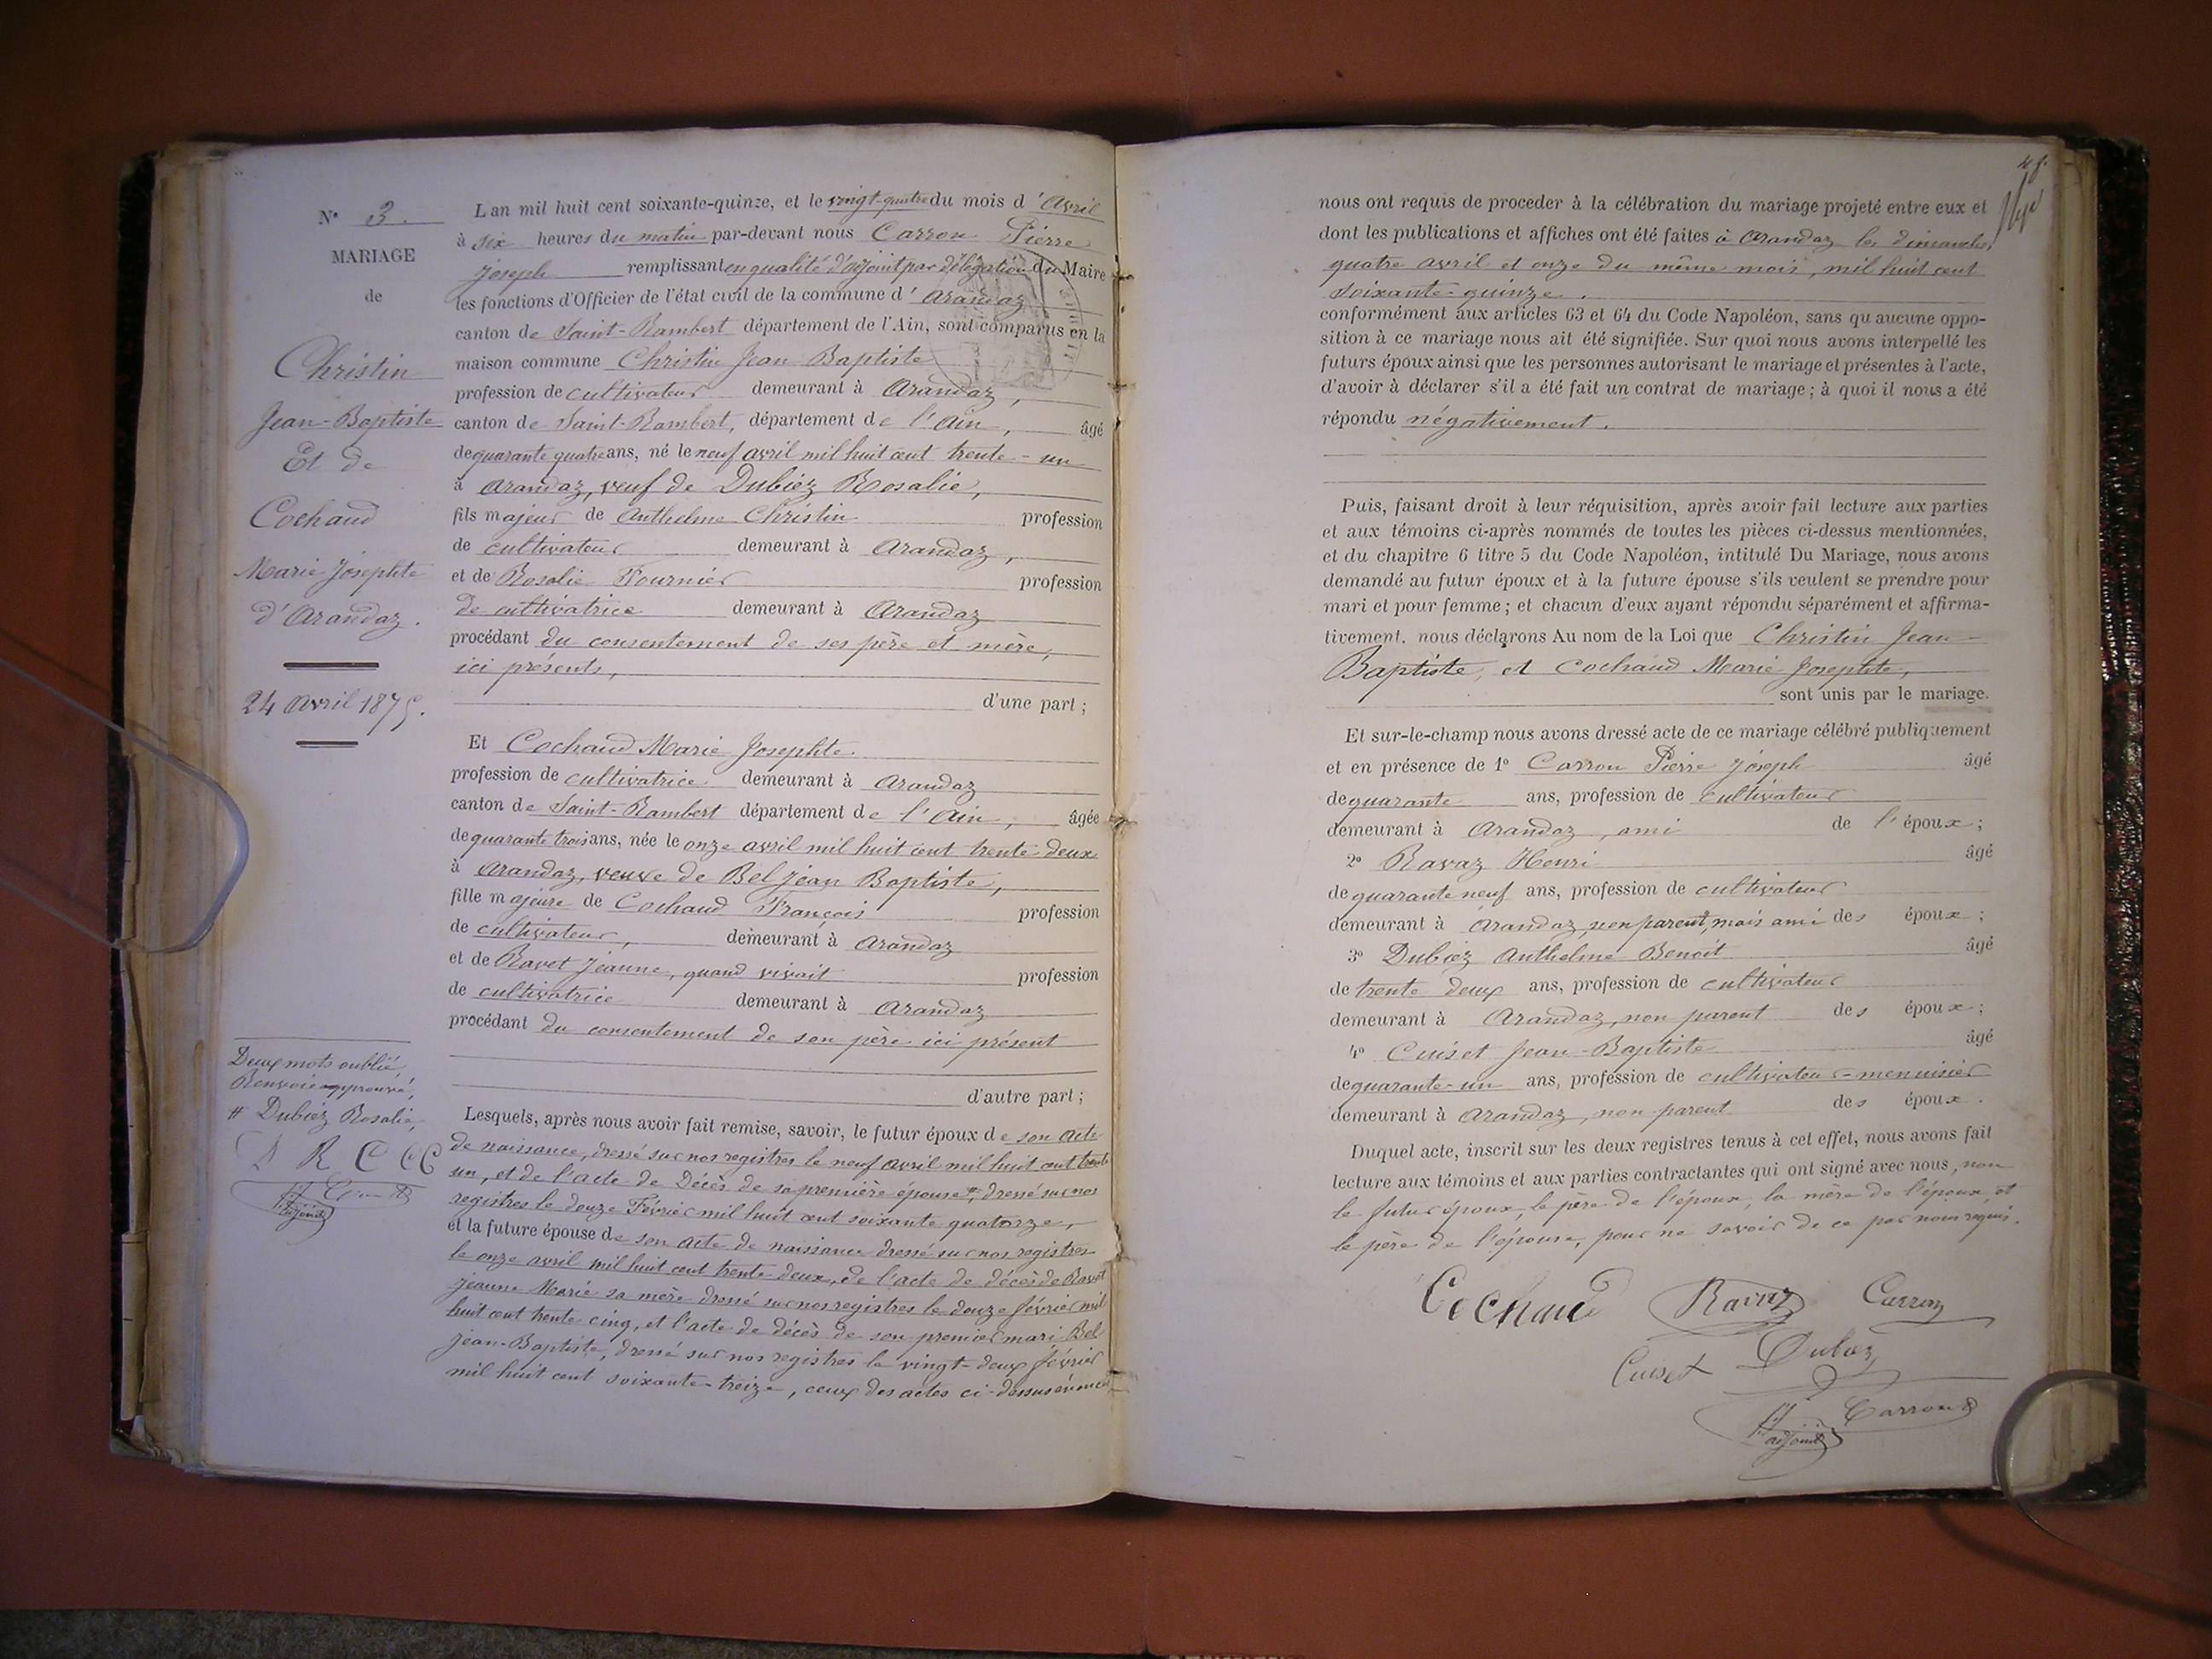 N° 3.
MARIAGE
de
Christin
Jean-Baptiste
Et de
Cochaud
Marie Josephte
d'Arandaz.
24 Avril 1875.
Deux mots oublié,
Renvoie approuvé,
# Dubiez Rosalie,
D R C C C
adjoint
L an mil huit cent soixante-quinze, et le vingt-quatre du mois d' Avril
à six heures du matin par-devant nous Carron Pierre
Joseph remplissant en qualité d'adjoint par délégation du Maire
les fonctions d'Officier de l'état civil de la commune d' Arandaz
canton de Saint-Rambert département de l'Ain, sont comparus en la
maison commune Christin Jean Baptiste
profession de cultivateur demeurant à Arandaz,
canton de Saint-Rambert, département de l'Ain, âgé
de quarante quatre ans, né le neuf avril mil huit cent trente-un
à Arandaz, veuf de Dubiez Rosalie,
fils majeur de Anthelme Christin profession
de cultivateur demeurant à Arandaz,
et de Rosalie Fournier profession
de cultivatrice demeurant à Arandaz
procédant du consentement de ses père et mère,
ici présents,
d'une part ;
Et Cochaud Marie Josephte.
profession de cultivatrice demeurant à Arandaz
canton de Saint-Rambert département de l'Ain, âgée
de quarante trois ans, née le onze avril mil huit cent trente deux
à Arandaz, veuve de Bel Jean Baptiste,
fille majeure de Cochaud François profession
de cultivateur, demeurant à Arandaz
et de Ravet Jeanne, quand vivait profession
de cultivatrice demeurant à Arandaz
procédant du consentement de son père ici présent
d'autre part ;
Lesquels, après nous avoir fait remise, savoir, le futur époux de son acte
de naissance, dressé sur nos registres le neuf avril mil huit cent trente
un, et de l'acte de Décès de sa première épouse #, dressé sur nos
registres le douze Février mil huit cent soixante quatorze,
et la future épouse de son acte de naissance dressé sur nos registres
le onze avril mil huit cent trente-deux, de l'acte de décès de Ravet
Jeanne Marie sa mère dressé sur nos registres le douze février mil
huit cent trente cinq, et l'acte de décès de son premier mari Bel
Jean-Baptiste, dressé sur nos registres le vingt-deux février
mil huit cent soixante-treize, ceux des actes ci-dessus énoncés
48.
nous ont requis de procéder à la célébration du mariage projeté entre eux et
dont les publications et affiches ont été faites à Arandaz les dimanches,
quatre avril et onze du même mois, mil huit cent
soixante-quinze.
conformément aux articles 63 et 64 du Code Napoléon, sans qu aucune oppo-
sition à ce mariage nous ait été signifiée. Sur quoi nous avons interpellé les
futurs époux ainsi que les personnes autorisant le mariage et présentes à l'acte,
d'avoir à déclarer s'il a été fait un contrat de mariage ; à quoi il nous a été
répondu négativement.
Puis, faisant droit à leur réquisition, après avoir fait lecture aux parties
et aux témoins ci-après nommés de toutes les pièces ci-dessus mentionnées,
et du chapitre 6 titre 5 du Code Napoléon, intitulé Du Mariage, nous avons
demandé au futur époux et à la future épouse s'ils veulent se prendre pour
mari et pour femme ; et chacun d'eux ayant répondu séparément et affirma-
tivement. nous déclarons Au nom de la Loi que Christin Jean-
Baptiste, et Cochaud Marie Josephte,
sont unis par le mariage.
Et sur-le-champ nous avons dressé acte de ce mariage célébré publiquement
et en présence de 1° Carron Pierre Joseph âgé
de quarante ans, profession de cultivateur
demeurant à Arandaz, ami de l'époux ;
2° Ravaz Henri âgé
de quarante neuf ans, profession de cultivateur
demeurant à Arandaz, non parent, mais ami des époux ;
3° Dubiez Anthelme Benoit âgé
de trente deux ans, profession de cultivateur
demeurant à Arandaz, non parent des époux ;
4° Cuiset Jean-Baptiste âgé
de quarante-un ans, profession de cultivateur-menuisier
demeurant à Arandaz, non-parent des époux.
Duquel acte, inscrit sur les deux registres tenus à cet effet, nous avons fait
lecture aux témoins et aux parties contractantes qui ont signé avec nous, non
le futur époux, le père de l'époux, la mère de l'époux, et
le père de l'épouse, pour ne savoir de ce par nous requis.
Cochaud Ravaz Carron
Cuiset Dubiez
Carron
adjoint